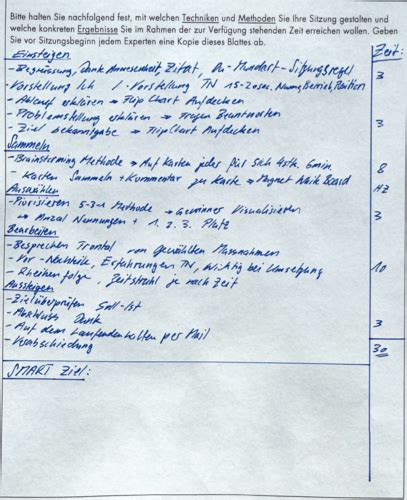 Bitte halten Sie nachfolgend fest, mit welchen Techniken und Methoden Sie Ihre Sitzung gestalten und
welche konkreten Ergebnisse Sie im Rahmen der zur Verfügung stehenden Zeit erreichen wollen. Geben
Sie vor Sitzungsbeginn jedem Experten eine Kopie dieses Blattes ab.
Zeit:
Einsteigen
- Begrüssung, Dank Anwesenheit Zitat, Du-Mundart-Sitzungsregel 3
- Vorstellung Ich / Vorstellung TN 15-20sec, Name, Betrieb, Position
- Ablauf erklären → Flip Chart Aufdecken
- Problemstellung erklären → Fragen Beantworten 3
- Ziel bekanntgabe → Flip Chart Aufdecken
Sammeln
- Brainstorming Methode → Auf Karten jedes für sich 4stk. 6min 8
- Karten Sammeln + Kommentar zu Karte → Magnet Board
Auswählen
- Priorisieren 5-3-1 Methode → Gewinner Visualisieren 3
→ Anzal Nennungen + 1. 2. 3. Platz
Bearbeiten
- Besprechen Frontal von Gewählten Massnahmen
- Vor-Nachteile, Erfahrungen TN, Wichtig bei Umsetzung 10
- Rheienfolge, Zeitstrahl je nach Zeit
Aussteigen
- Ziel überprüfen Soll-Ist
- Abschluss Dank
- Auf dem Laufenden halten per Mail 3
- Verabschiedung
30
SMART Ziel: